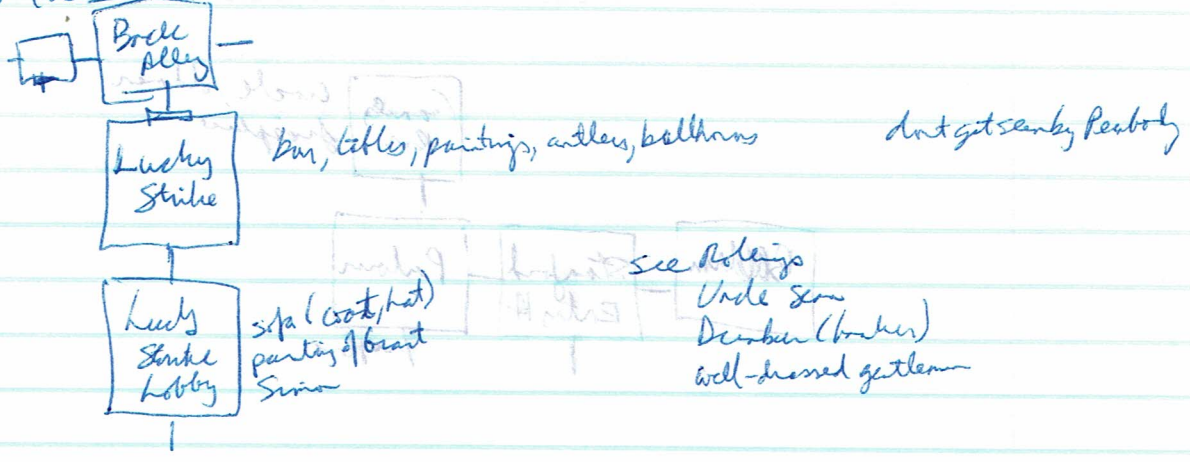 Back
Alley
Lucky
Strike
bar, tables, paintings, antlers, bullhorns
dont get seen by Peabody
Lucky
Strike
Lobby
sofa (coat, hat)
painting of Grant
Simon
see Rollings
Uncle Sean
(banker)
well-dressed gentleman